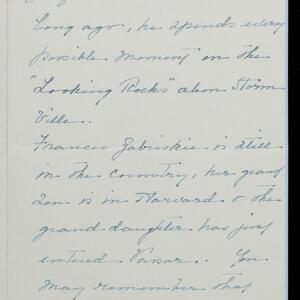 long ago, he spends every
possible moment on the
"Looking Rocks" above Storm
Ville.
Frances Zabriskie is still
in the country, her grand
son is in Harvard & the
grand daughter has just
entered Vassar. You
may remember that